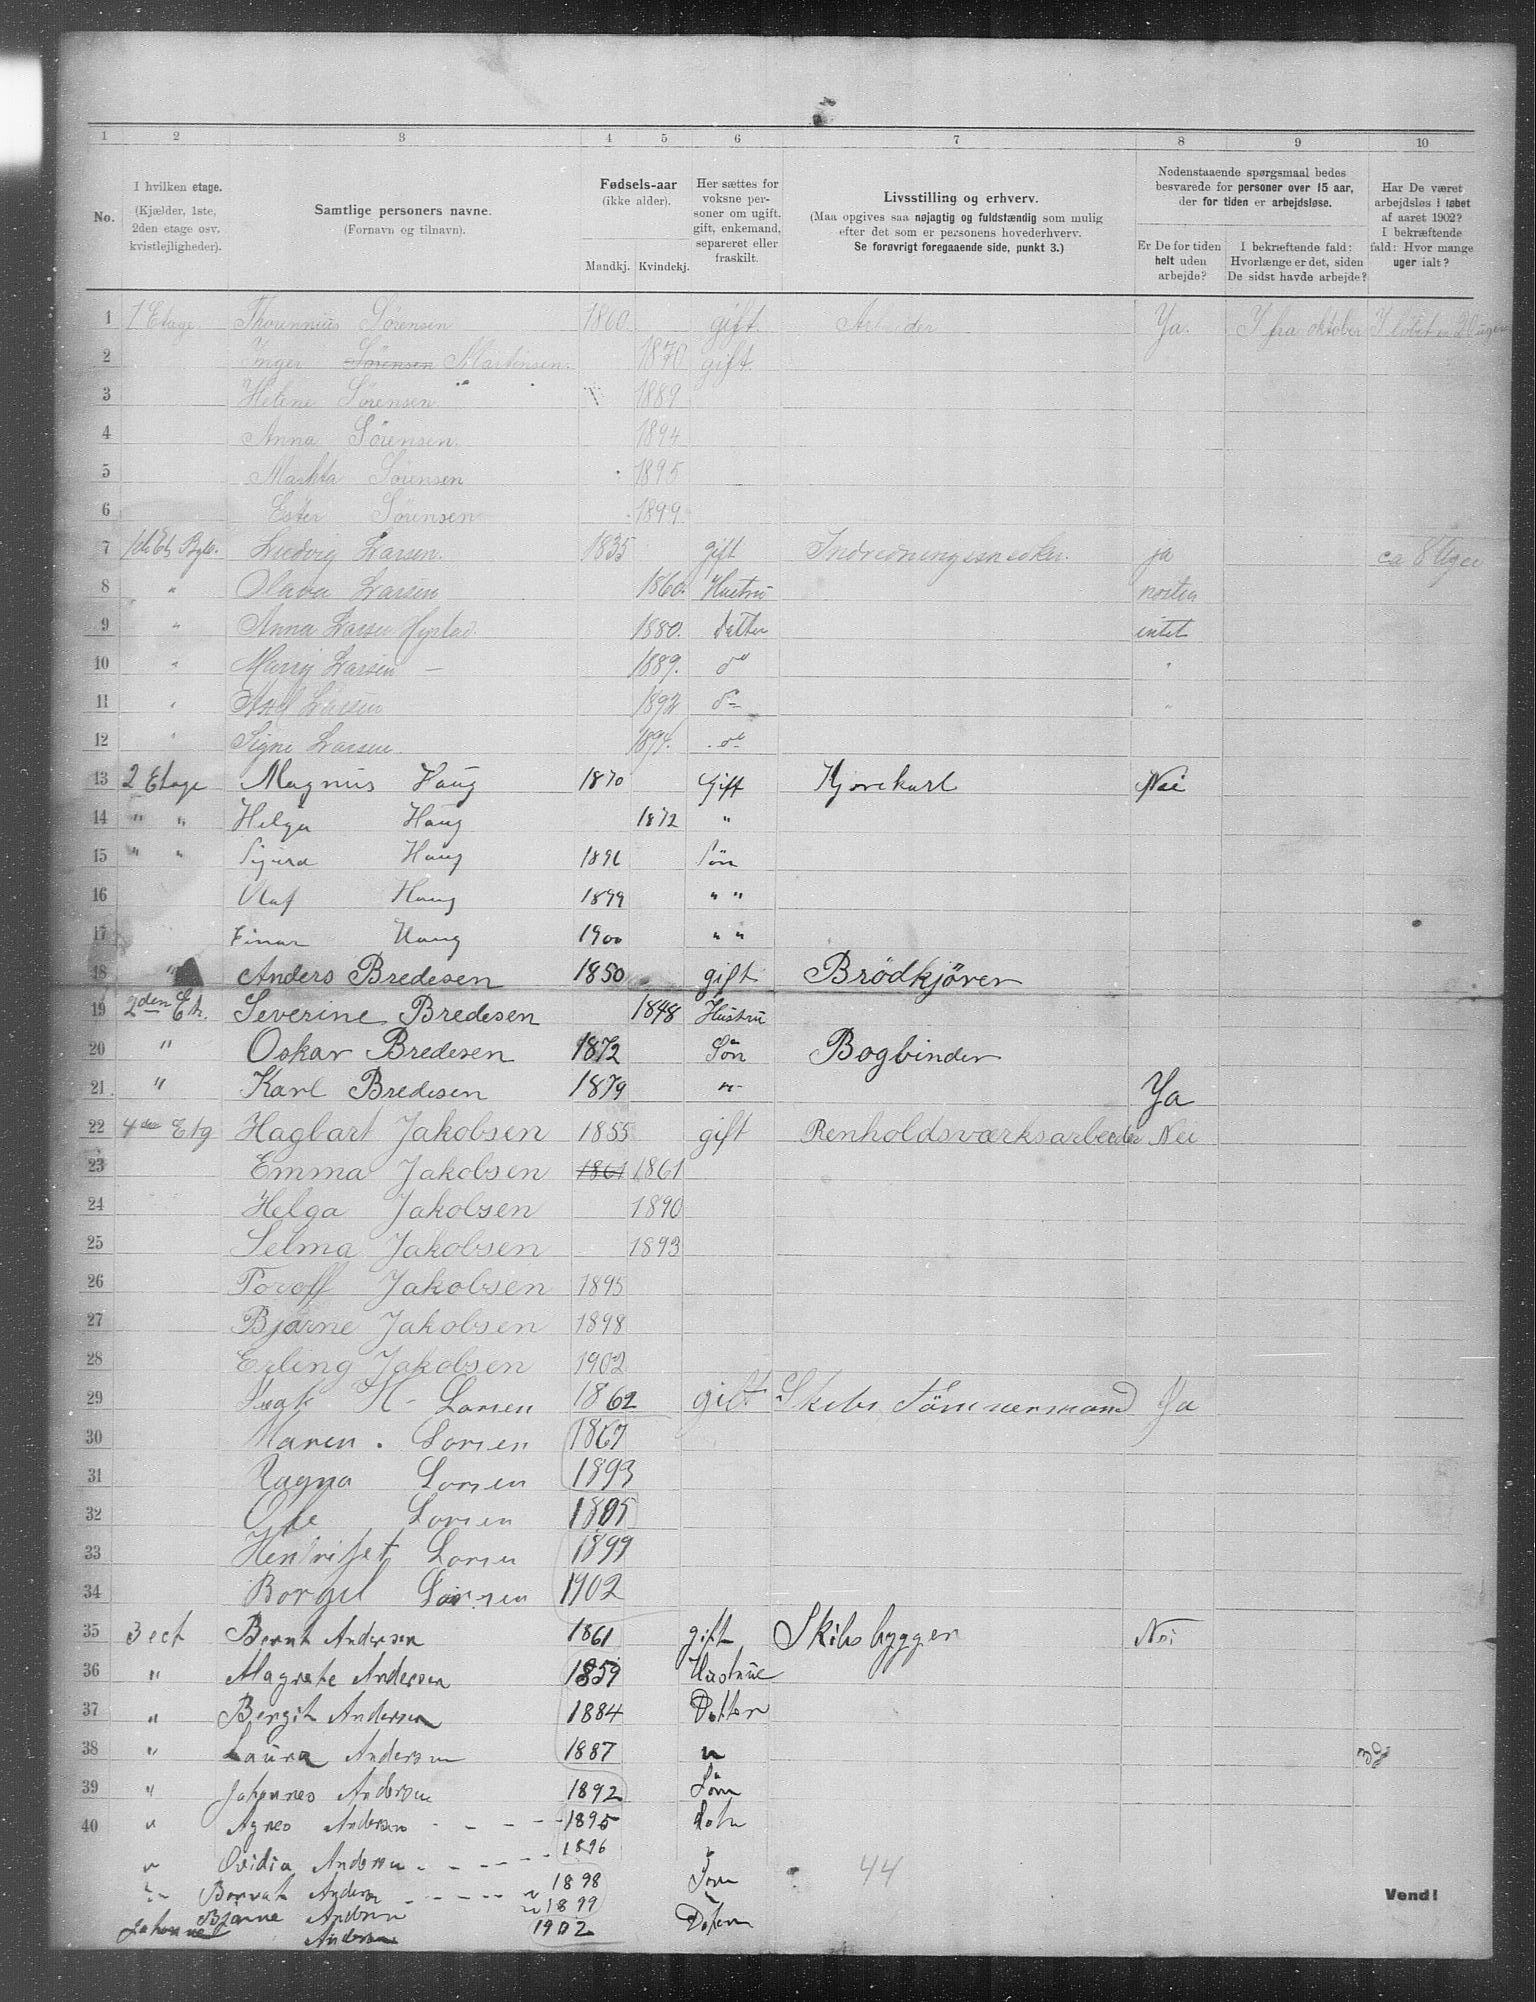 1 2 3 4 5 6 7 8 9 10
No.
I hvilken etage.
(Kjælder, 1ste,
2den etage osv.
kvistlejligheder).
Samtlige personers navne.
(Fornavn og tilnavn).
Fødsels-aar
(ikke alder).
Mandkj. Kvindekj.
Her sættes for
voksne per-
soner om ugift,
gift, enkemand,
separeret eller
fraskilt.
Livsstilling og erhverv.
(Maa opgives saa nøjagtig og fuldstændig som mulig
efter det som er personens hovederhverv.
Se forøvrigt foregaaende side, punkt 3.)
Nedenstaaende spørgsmaal bedes
besvarede for personer over 15 aar,
der for tiden er arbejdsløse.
Er De for tiden
helt uden
arbejde?
I bekræftende fald:
Hvorlænge er det, siden
De sidst havde arbejde?
Har De været
arbejdsløs i løbet
af aaret 1902?
I bekræftende
fald: Hvor mange
uger ialt?
1 1 Etage Sørensen 1860 gift Arbeider Ya. I fra oktober I løbet 20 uger
2 Inger Sørensen Martinsen. 1870 gift.
3 Helene Sørensen 1889
4 Anna Sørensen. 1894
5 Sørensen 1895
6 Ester Sørensen 1899
7 Ludvig Larsen. 1835 gift ja ca 8 Uger
8 " Larsen 1860. Hustru
9 " Anna Larsen 1880. datter intet
10 " Larsen — 1889. do "
11 " Larsen 1892 do "
12 " Signe Larsen 1894. do
13 2 Etage Magnus Haug 1870 Gift Kjørekarl Nei
14 " " Helga Haug 1872 "
15 " " Sigurd Haug Søn
16 Olaf Haug 1899 " "
17 Einar Haug 1900 " "
18 " Anders Bredesen 1850 gift Brödkjörer
19 2den Et. Severine Bredesen 1848 Hustru
20 " Oskar Bredesen 1872 Søn Bogbinder
21 " Karl Bredesen 1879 " Ya
22 4de Etg Hagbart Jakobsen 1855 gift Renholdsværksarbeider Nei
23 Emma Jakobsen 1861 1861
24 Helga Jakobsen 1890
25 Selma Jakobsen 1893
26 Jakobsen 1895
27 Bjarne Jakobsen 1898
28 Erling Jakobsen 1902
29 H Larsen 1862 gift Skibs Tömmermand Ja
30 Maren. Larsen 1867
31 Ragna Larsen 1893
32 Ole Larsen
33 Larsen 1899
34 Larsen 1902
35 3 ect Bernt Andersen 1861 gift Skibsbygger Nei
36 " Magrete Andersen 1859 Hustrue
37 " Bergit Andersen 1884 Datter
38 " Laura Andersen 1887 "
39 " Johannes Andersen 1892 Søn
40 " Agnes Andersen 1895
" Ovidia Andersen 1896 "
Andersen 1898 Søn 44
Bjarne Andersen 1899
Andersen 1902
Vend!